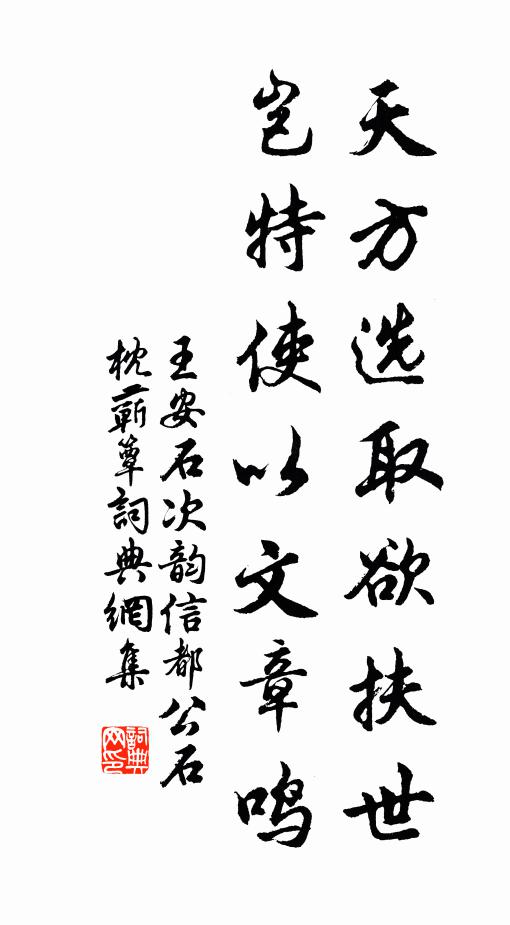 天方选取欲扶世
岂特使以文章鸣
王安石次韵信都公石
枕蕲簟詞典網集
詞典
网印